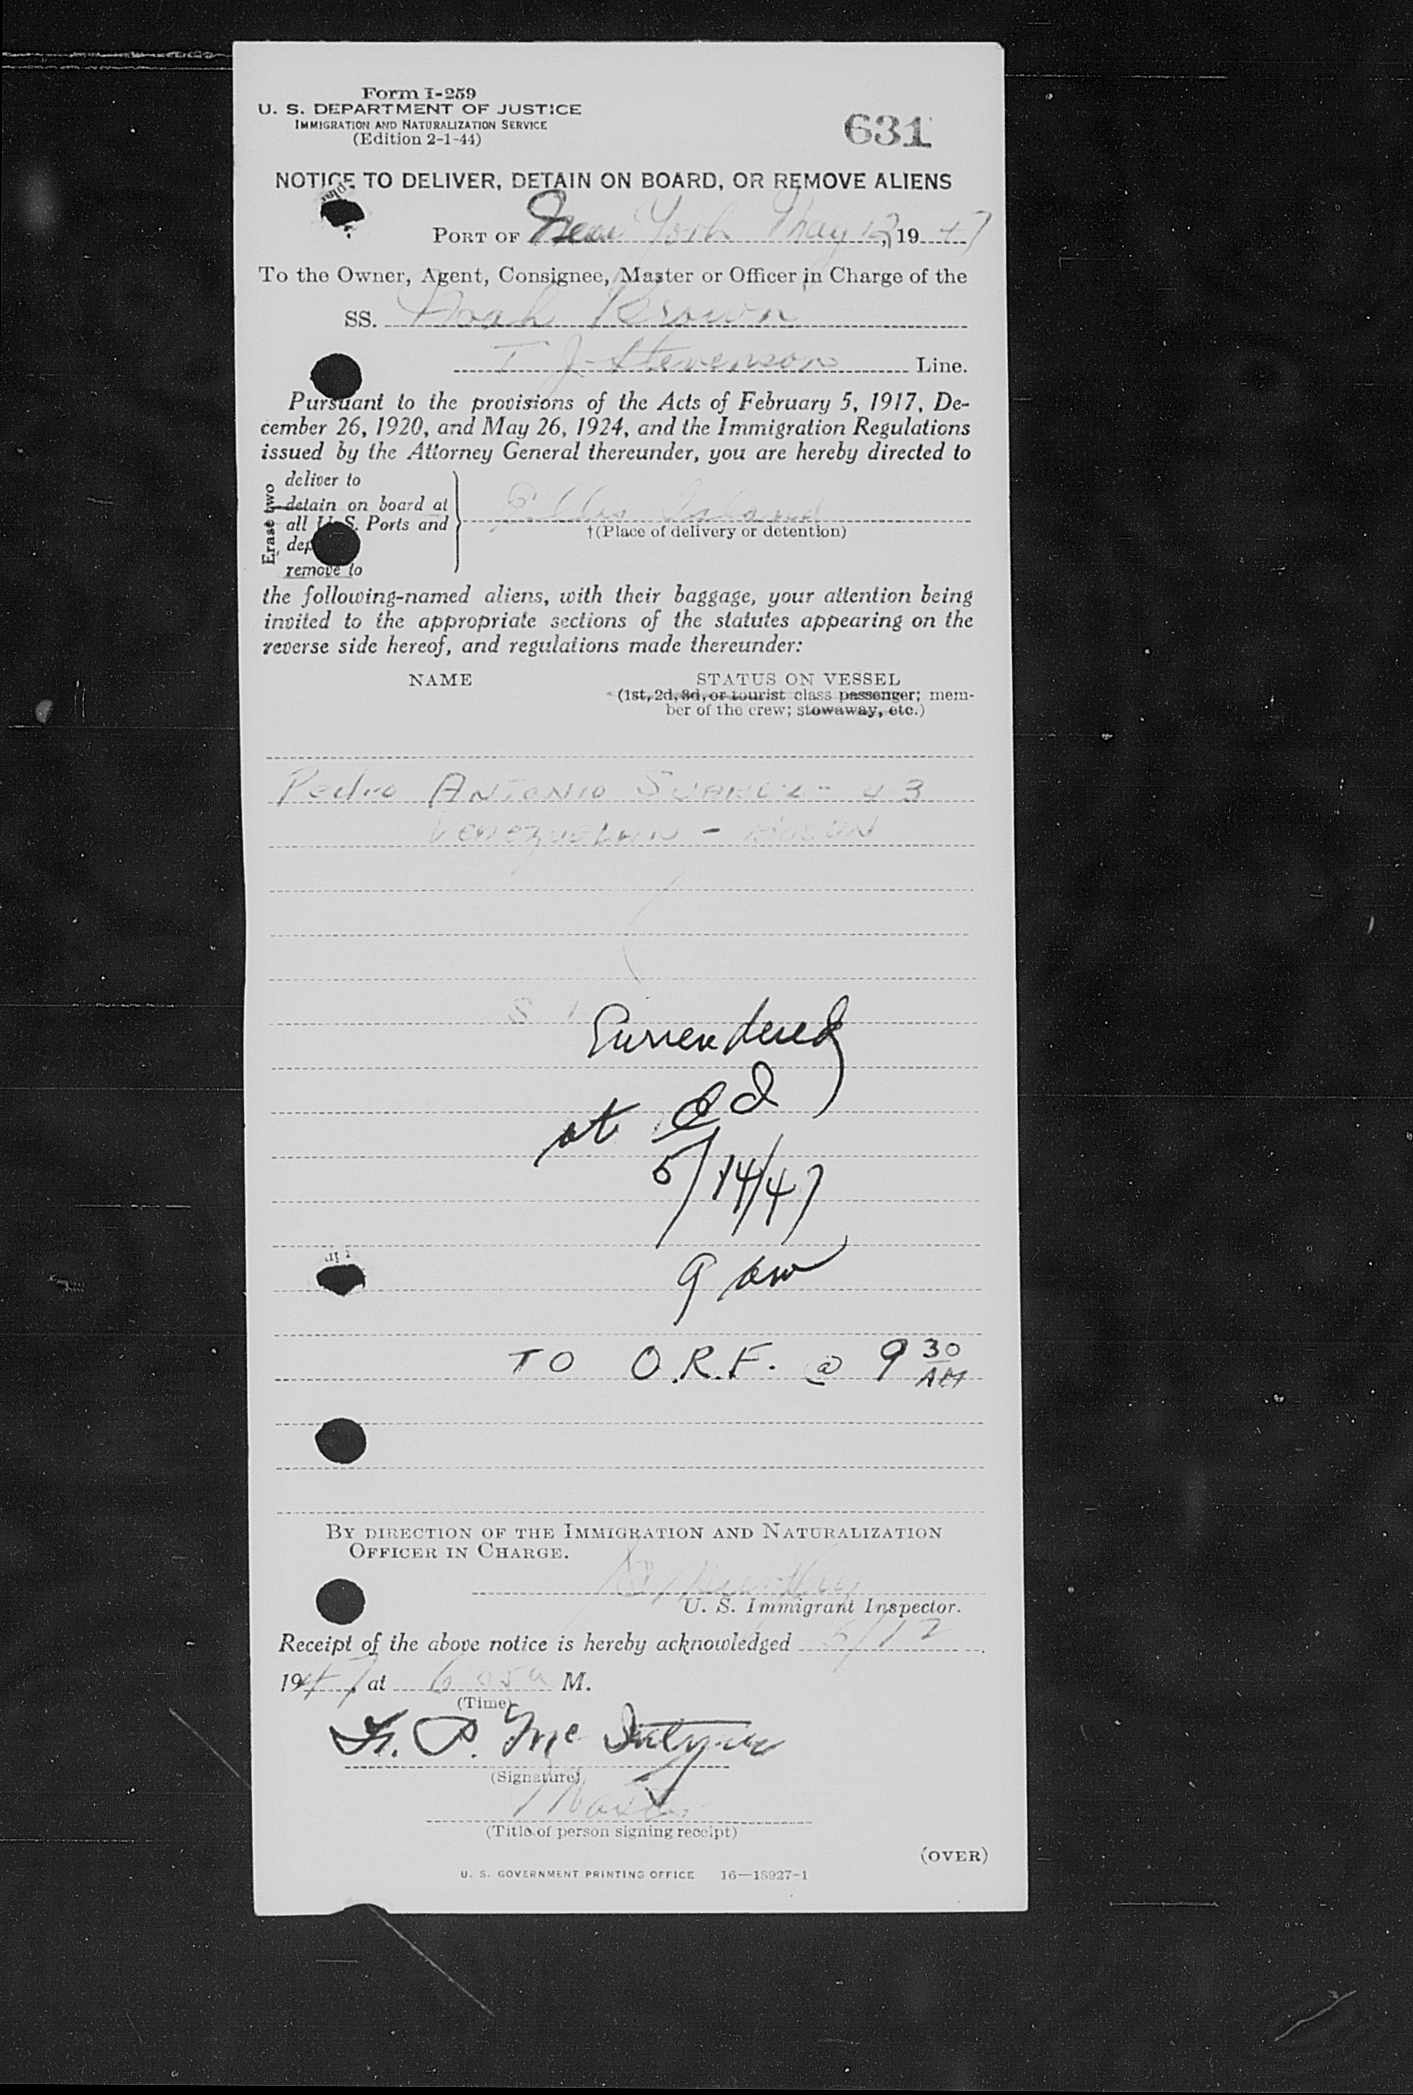 Form I-259
U. S. DEPARTMENT OF JUSTICE
IMMIGRATION AND NATURALIZATION SERVICE
(Edition 2-1-44)
631
NOTICE TO DELIVER, DETAIN ON BOARD, OR REMOVE ALIENS
PORT OF New York May 12, 1947
To the Owner, Agent, Consignee, Master or Officer in Charge of the
SS. Noah Brown
T J Stevenson Line.
Pursuant to the provisions of the Acts of February 5, 1917, De-
cember 26, 1920, and May 26, 1924, and the Immigration Regulations
issued by the Attorney General thereunder, you are hereby directed to
Erase two
deliver to
detain on board at
all U. S. Ports and
remove to
Ellis Island
†(Place of delivery or detention)
the following-named aliens, with their baggage, your attention being
invited to the appropriate sections of the statutes appearing on the
reverse side hereof, and regulations made thereunder:
NAME STATUS ON VESSEL
(1st, 2d, 3d, or tourist class passenger; mem-
ber of the crew; stowaway, etc.)
Pedro ANTONIO SUAREZ - 43
Venezuelan -
Surrendered
at
5/14/47
9 am
TO O.R.F. @ 9 30 AM
BY DIRECTION OF THE IMMIGRATION AND NATURALIZATION
OFFICER IN CHARGE.
U. S. Immigrant Inspector.
Receipt of the above notice is hereby acknowledged 5/12
1947 at M.
(Time)
McIntyre
(Signature)
Master
(Title of person signing receipt)
(OVER)
U. S. GOVERNMENT PRINTING OFFICE 16—18927-1